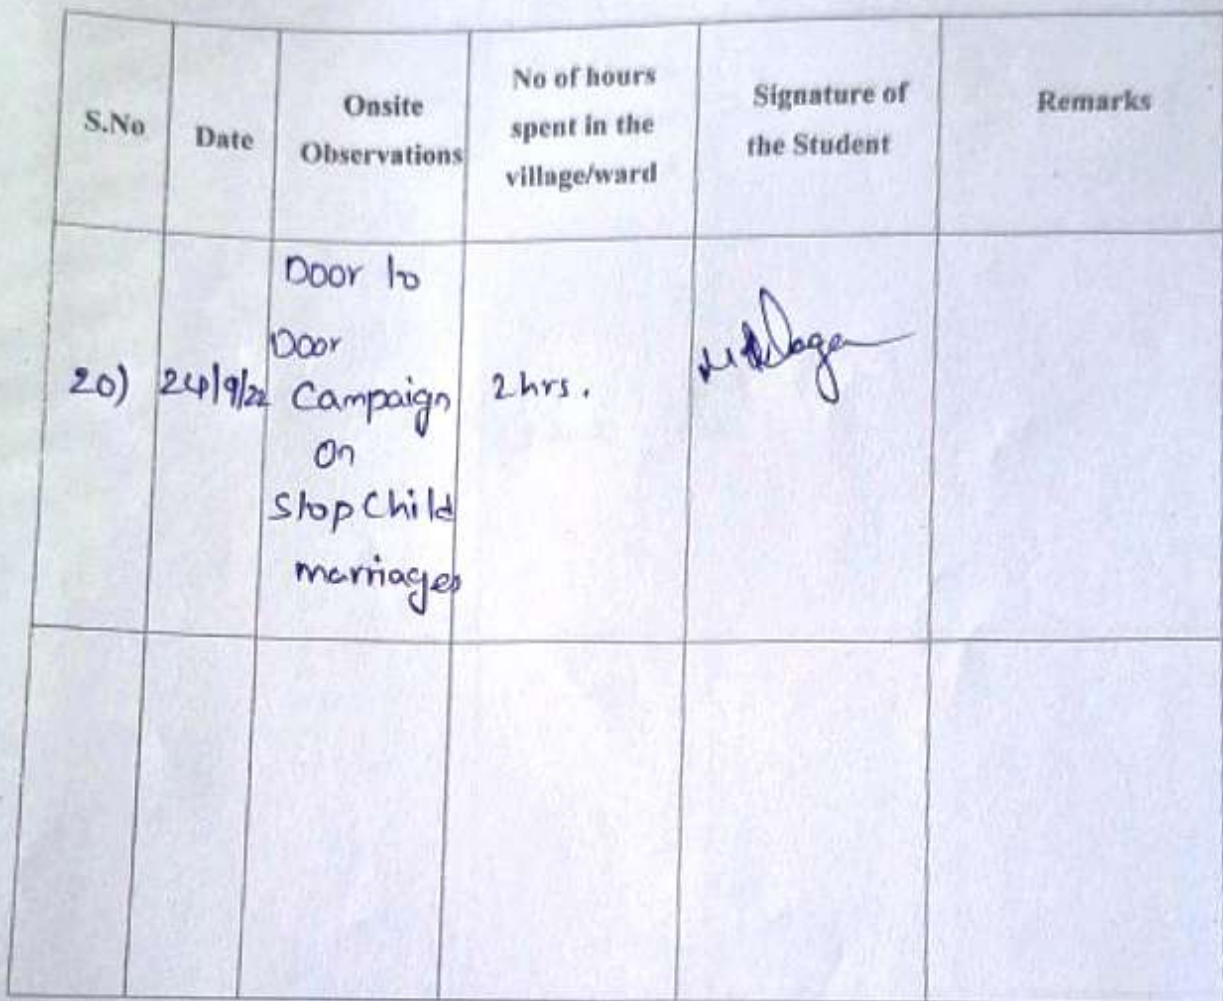 S.No
Date
Onsite
Observations
No of hours
spent in the
village/ward
Signature of
the Student
Remarks
20)
24/9/22
Door to
Door
Campaign
On
Stop Child
marriages
2 hrs.